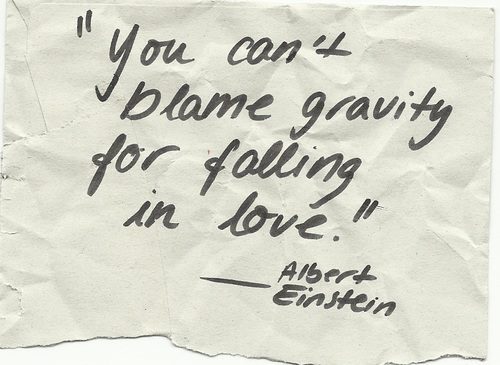 "You can't
blame gravity
for falling
in love."
— Albert
Einstein